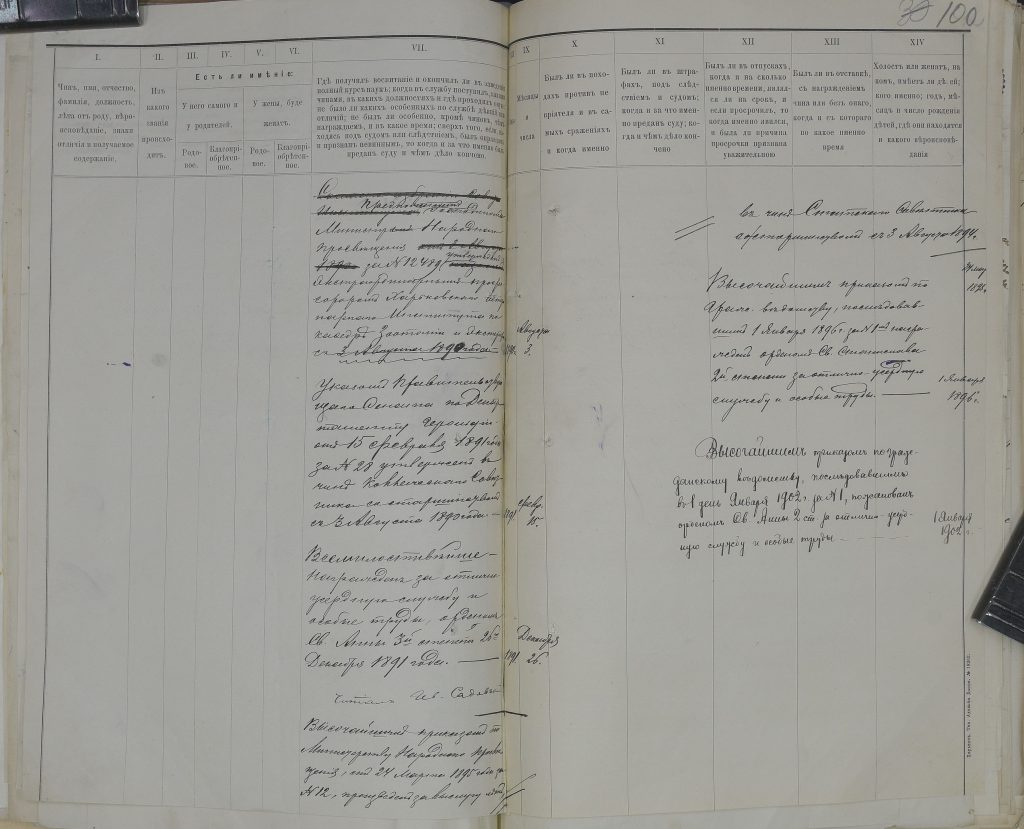 100
I.
II.
III.
IV.
V.
VI.
VII.
IX
X
XI
XII
XIII
XIV
Чинъ, имя, отчество,
фамилія, должность,
лѣта отъ роду, вѣро-
исповѣданіе, знаки
отличія и получаемое
содержаніе.
Изъ
какого
званія
происхо-
дитъ.
Есть ли имѣніе:
У него самого и
у родителей.
У жены, буде
женатъ.
Родо-
вое.
Благопрі-
обрѣтен-
ное.
Родо-
вое.
Благопрі-
обрѣтен-
ное.
Гдѣ получалъ воспитаніе и окончилъ ли въ заведеніи
полный курсъ наукъ; когда въ службу поступилъ, какими
чинами, въ какихъ должностяхъ и гдѣ проходилъ оную;
не было ли какихъ особенныхъ по службѣ дѣяній или
отличій; не былъ ли особенно, кромѣ чиновъ, чѣмъ
награждаемъ, и въ какое время; сверхъ того, если на-
ходясь подъ судомъ или слѣдствіемъ, былъ оправданъ
и признанъ невиннымъ, то когда и за что именно былъ
преданъ суду и чѣмъ дѣло кончено.
Мѣсяцы
и
числа
Былъ ли въ похо-
дахъ противъ не-
пріятеля и въ са-
мыхъ сраженіяхъ
и когда именно
Былъ ли въ штра-
фахъ, подъ слѣд-
ствіемъ и судомъ;
когда и за что имен-
но преданъ суду; ко-
гда и чѣмъ дѣло кон-
чено
Былъ ли въ отпускахъ,
когда и на сколько
именно времени, являл-
ся ли на срокъ, и
если просрочилъ, то
когда именно явился,
и была ли причина
просрочки признана
уважительною
Былъ ли въ отставкѣ,
съ награжденіемъ
чина или безъ онаго,
когда и съ котораго
по какое именно
время
Холостъ или женатъ, на
комъ, имѣетъ ли дѣтей;
кого именно; годъ, мѣ-
сяцъ и число рожденія
дѣтей, гдѣ они находятся
и какого вѣроисповѣ-
данія
Предложеніемъ Господина
Министра Народнаго
Просвѣщенія
за №12489, утвержденъ
Экстраординарнымъ профес-
соромъ Харьковскаго Вете-
ринарнаго Института по
каѳедрѣ Зоотоміи и
съ 3 Августа 1890 года
Августа
3.
Указомъ Правительствую-
щаго Сената по Депар-
таменту Герольдіи
отъ 15 Февраля 1891 года
за №28 утвержденъ въ
чинѣ Коллежскаго Совѣт-
ника со старшинствомъ
съ 3 Августа 1890 года.
1891
Февр.
15.
Всемилостивѣйше
награжденъ за отлично
усердную службу и
особые труды, орденомъ
Св. Анны 3й степени 26го
Декабря 1891 года.
1891
Декабря
26.
Читалъ Ив. Садовскій
Высочайшимъ приказомъ по
Министерству Народнаго Просвѣ-
щенія, отъ 24 Марта 1895 года за
№12, произведенъ за выслугу лѣтъ
въ чинъ Статскаго Совѣтника
со старшинствомъ съ 3 Августа 1894 г.
1895 г.
Высочайшимъ приказомъ по
гражд. вѣдомству, послѣдовав-
шимъ 1 Января 1896 г. за №1 награ-
жденъ орденомъ Св. Станислава
2й степени за отлично-усердную
службу и особые труды.
1 Января
1896 г.
Высочайшимъ приказомъ по граж-
данскому вѣдомству, послѣдовавшимъ
въ 1 день Января 1902 г. за №1, пожалованъ
орденомъ Св. Анны 2 ст. за отлично-усерд-
ную службу и особые труды
1 Января
1902 г.